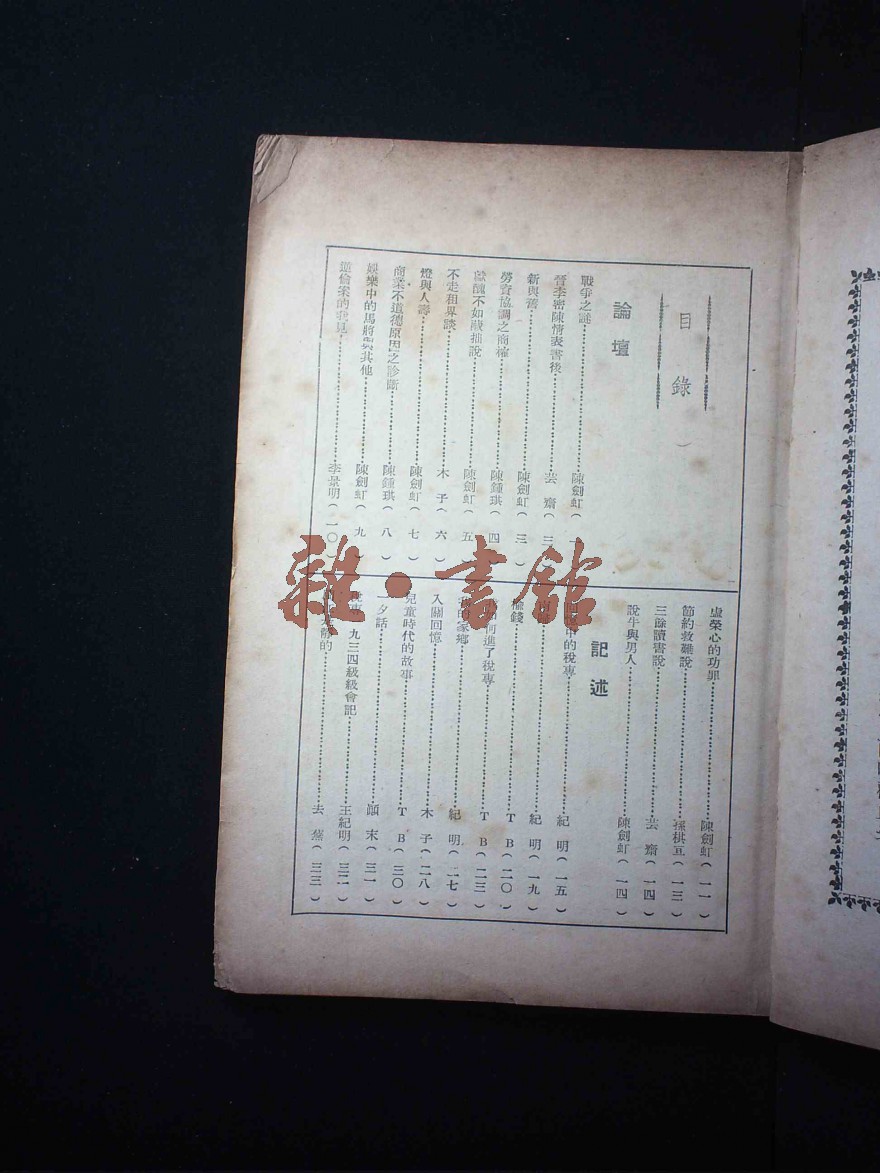 目錄
論壇
戰爭之謎 陳劍虹(一)
晉李密陳情表書後 芸齋(三)
新與舊 陳劍虹(三)
勞資協調之商榷 陳鍾琪(四)
獻醜不如藏拙說 陳劍虹(五)
不走租界談 木子(六)
燈與人壽 陳劍虹(七)
商業不道德原因之診斷 陳鍾琪(八)
娛樂中的馬將與其他 陳劍虹(九)
逆倫案的我見 李景明(一〇)
虛榮心的功罪 陳劍虹(一一)
節約救難說 棋宜(一三)
三餘讀書說 芸齋(一四)
說牛與男人 陳劍虹(一四)
記述
中的稅專 紀明(一五)
紀明(一九)
錢 TB(二〇)
何進了稅專 TB(二三)
的家鄉 紀明(二七)
入關回憶 木子(二八)
兒童時代的故事 TB(三〇)
一夕話 顓末(三一)
稅專一九三四級級會記 王紀明(三二)
靜的 去燕(三三)
雜·書館